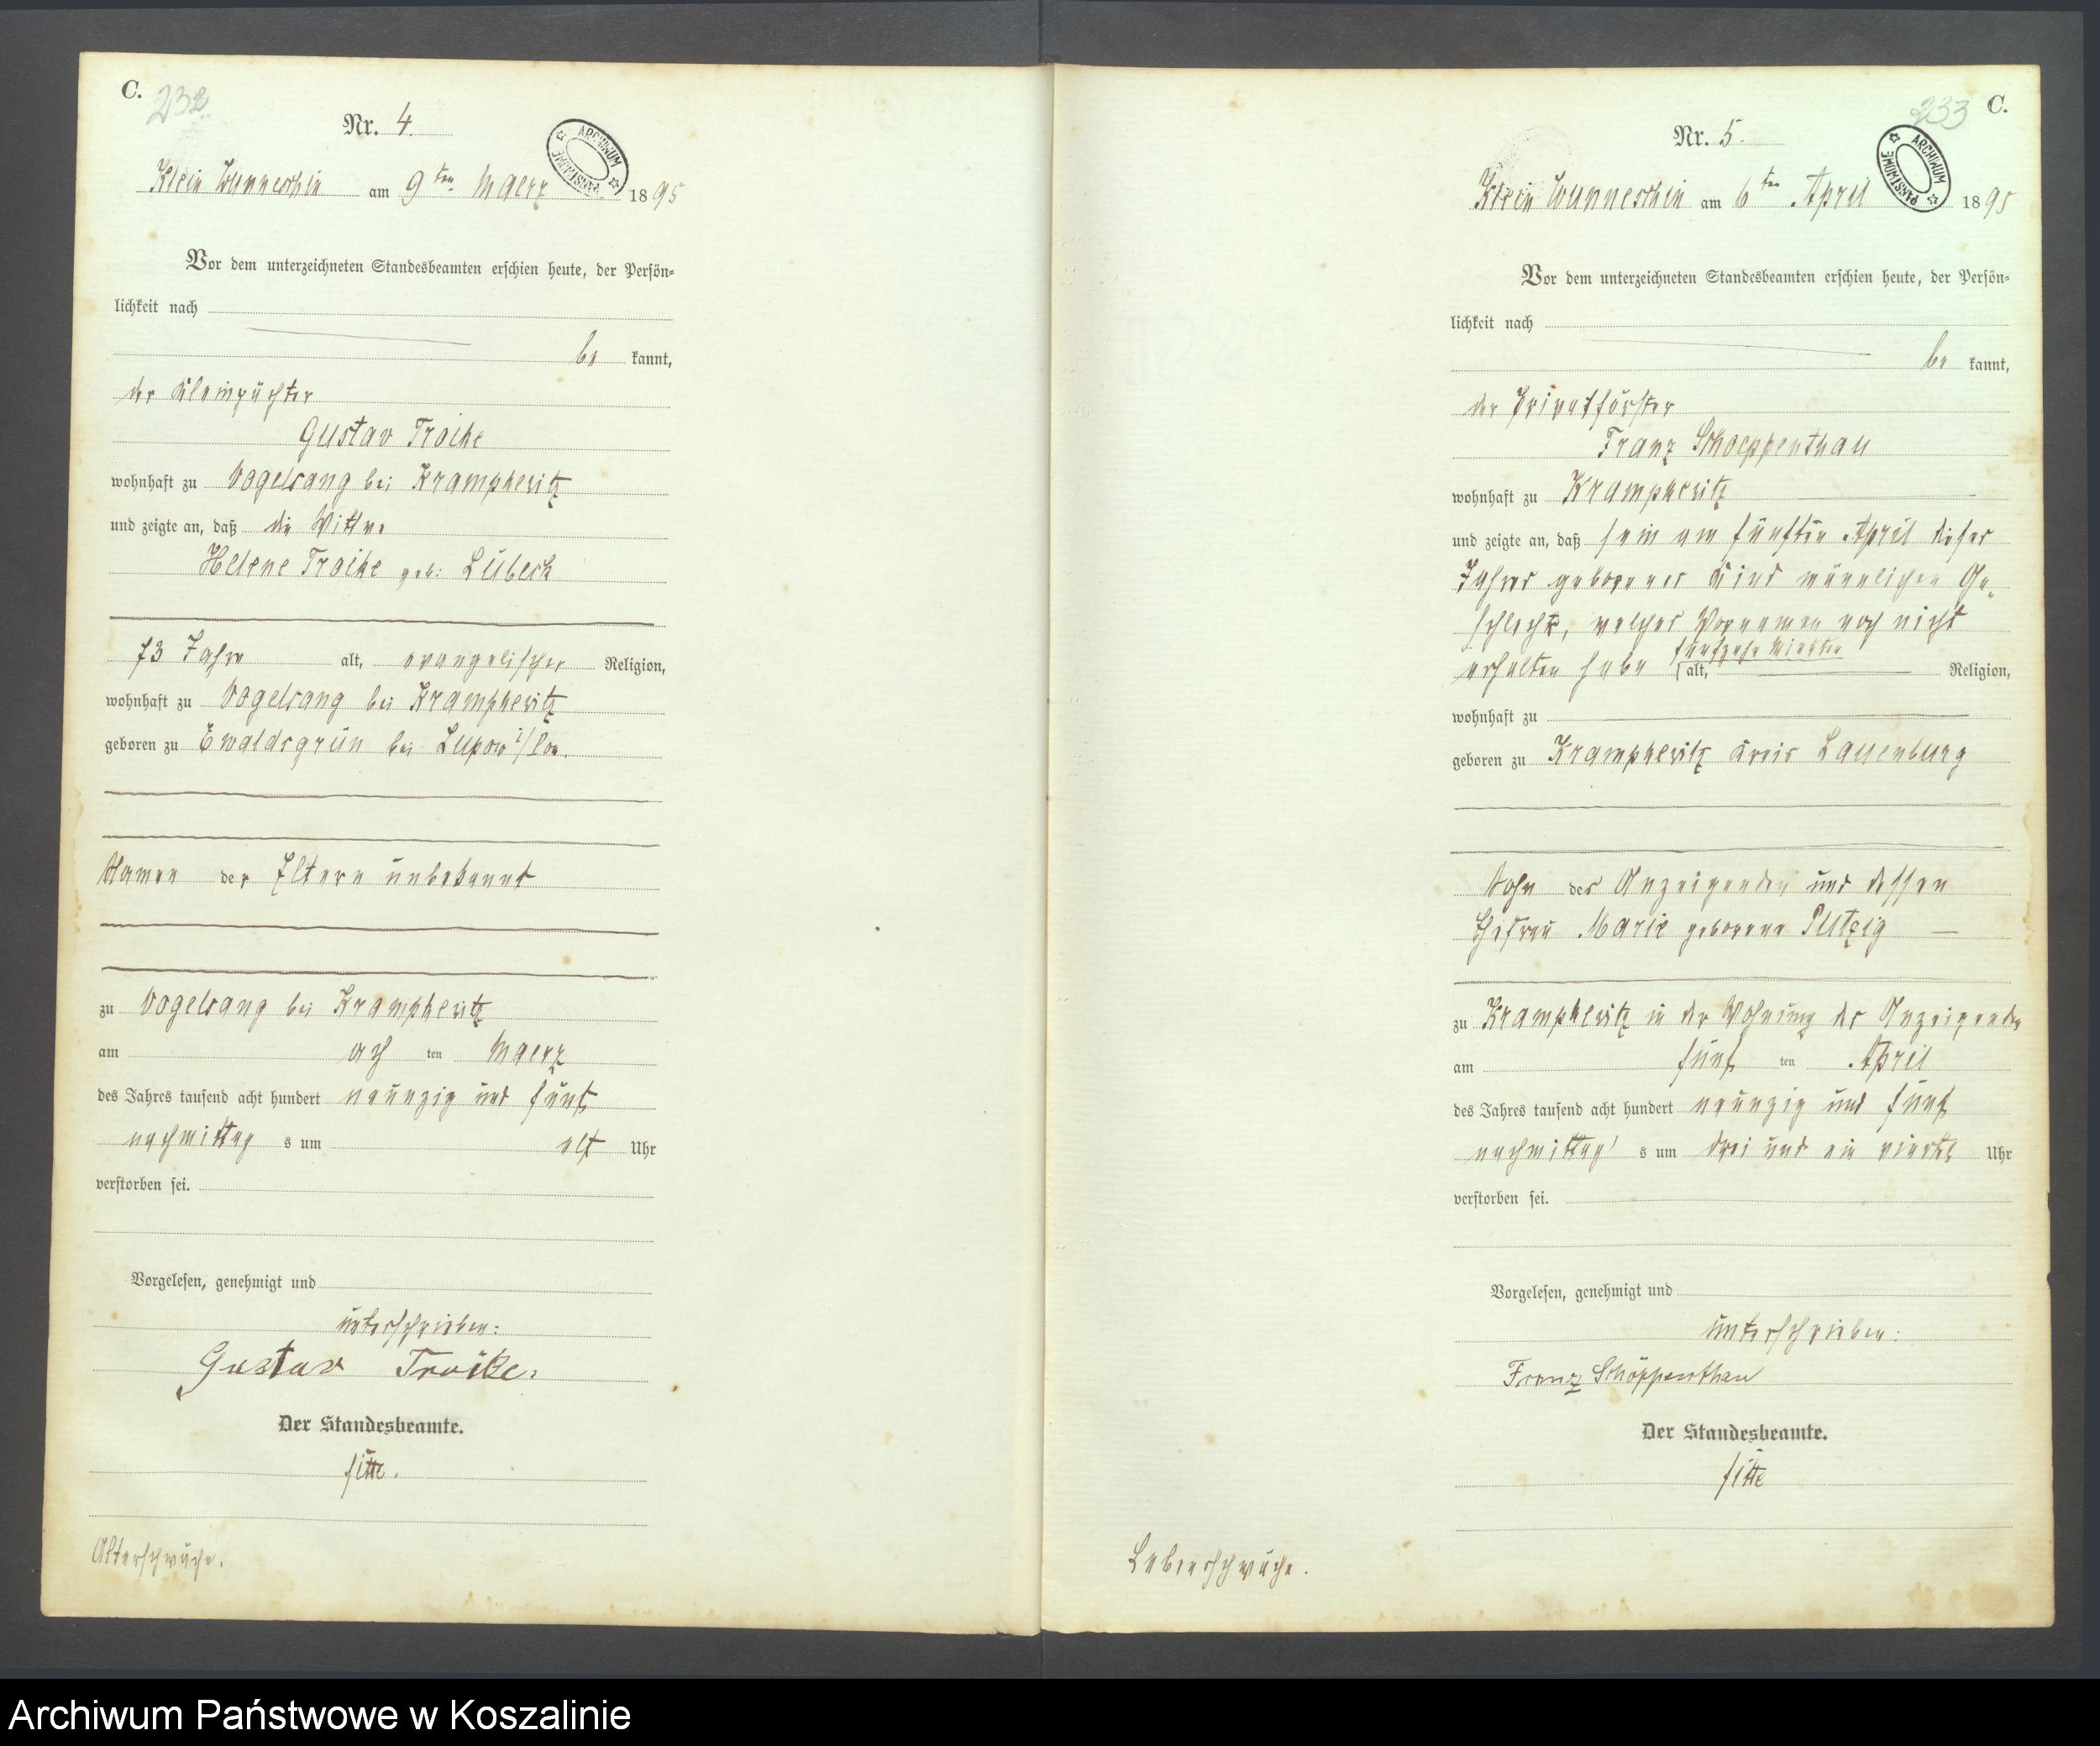 C.
232
Nr. 4.
ARCHIWUM PAŃSTWOWE
Klein Wunneschin am 9ten Maerz 1895
Vor dem unterzeichneten Standesbeamten erschien heute, der Persön-
lichkeit nach
be kannt,
der Kleinpächter
Gustav Troike
wohnhaft zu Vogelsang bei Krampkewitz
und zeigte an, daß die Wittwe
Helene Troike geb: Lübeck
73 Jahre alt, evangelischer Religion,
wohnhaft zu Vogelsang bei Krampkewitz
geboren zu Ewaldsgrün bei Lupow i/Pom.
Namen der Eltern unbekannt
zu Vogelsang bei Krampkewitz
am ach ten Maerz
des Jahres tausend acht hundert neunzig und fünf
nachmittag s um elf Uhr
verstorben sei.
Vorgelesen, genehmigt und
unterschrieben:
Gustav Troike.
Der Standesbeamte.
Alterschwäche.
233
C.
Nr. 5.
ARCHIWUM PAŃSTWOWE
Klein Wunneschin am 6ten April 1895
Vor dem unterzeichneten Standesbeamten erschien heute, der Persön-
lichkeit nach
be kannt,
der Privatförster
Franz Schoeppenthau
wohnhaft zu Krampkewitz
und zeigte an, daß sein am fünften April dieses
Jahres geborenes Kind männlichen Ge-
schlechts, welches Vornamen noch nicht
erhalten habe fünfzehn Minuten alt, Religion,
wohnhaft zu
geboren zu Krampkewitz Kreis Lauenburg
Sohn des Anzeigenden und dessen
Ehefrau Marie geborene Putzig
zu Krampkewitz in der Wohnung des Anzeigenden
am fünf ten April
des Jahres tausend acht hundert neunzig und fünf
nachmittag s um drei und ein viertel Uhr
verstorben sei.
Vorgelesen, genehmigt und
unterschrieben:
Franz Schöppenthau
Der Standesbeamte.
Lebensschwäche.
Archiwum Państwowe w Koszalinie